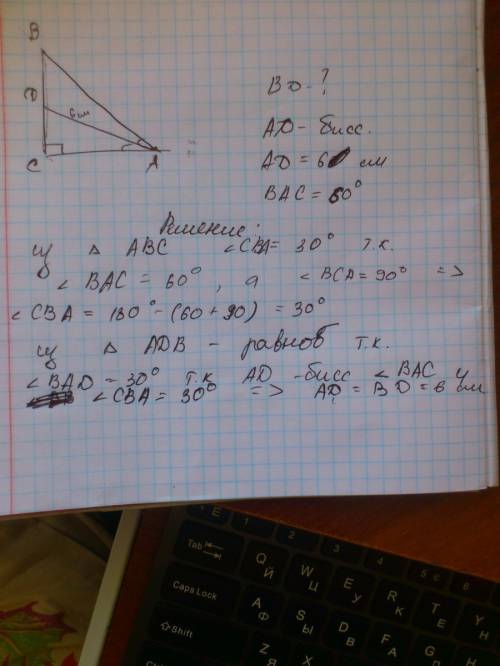 B
D
6 см
C
A
BD - ?
AD - бисс.
AD = 6 см
BAC = 60°
Решение:
из △ ABC ∠CBA = 30° т.к.
∠ BAC = 60°, а ∠ BCA = 90° =>
∠ CBA = 180° - (60 + 90) = 30°
из △ ADB - равноб т.к.
∠ BAD = 30° т.к AD - бисс ∠ BAC и
∠ CBA = 30° => AD = BD = 6 см
E 1 2 3 4 5 6
Tab Q Й W Ц E У R К T Е Y Н
Caps Lock A Ф S Ы D В F А G
Shift Z Я X